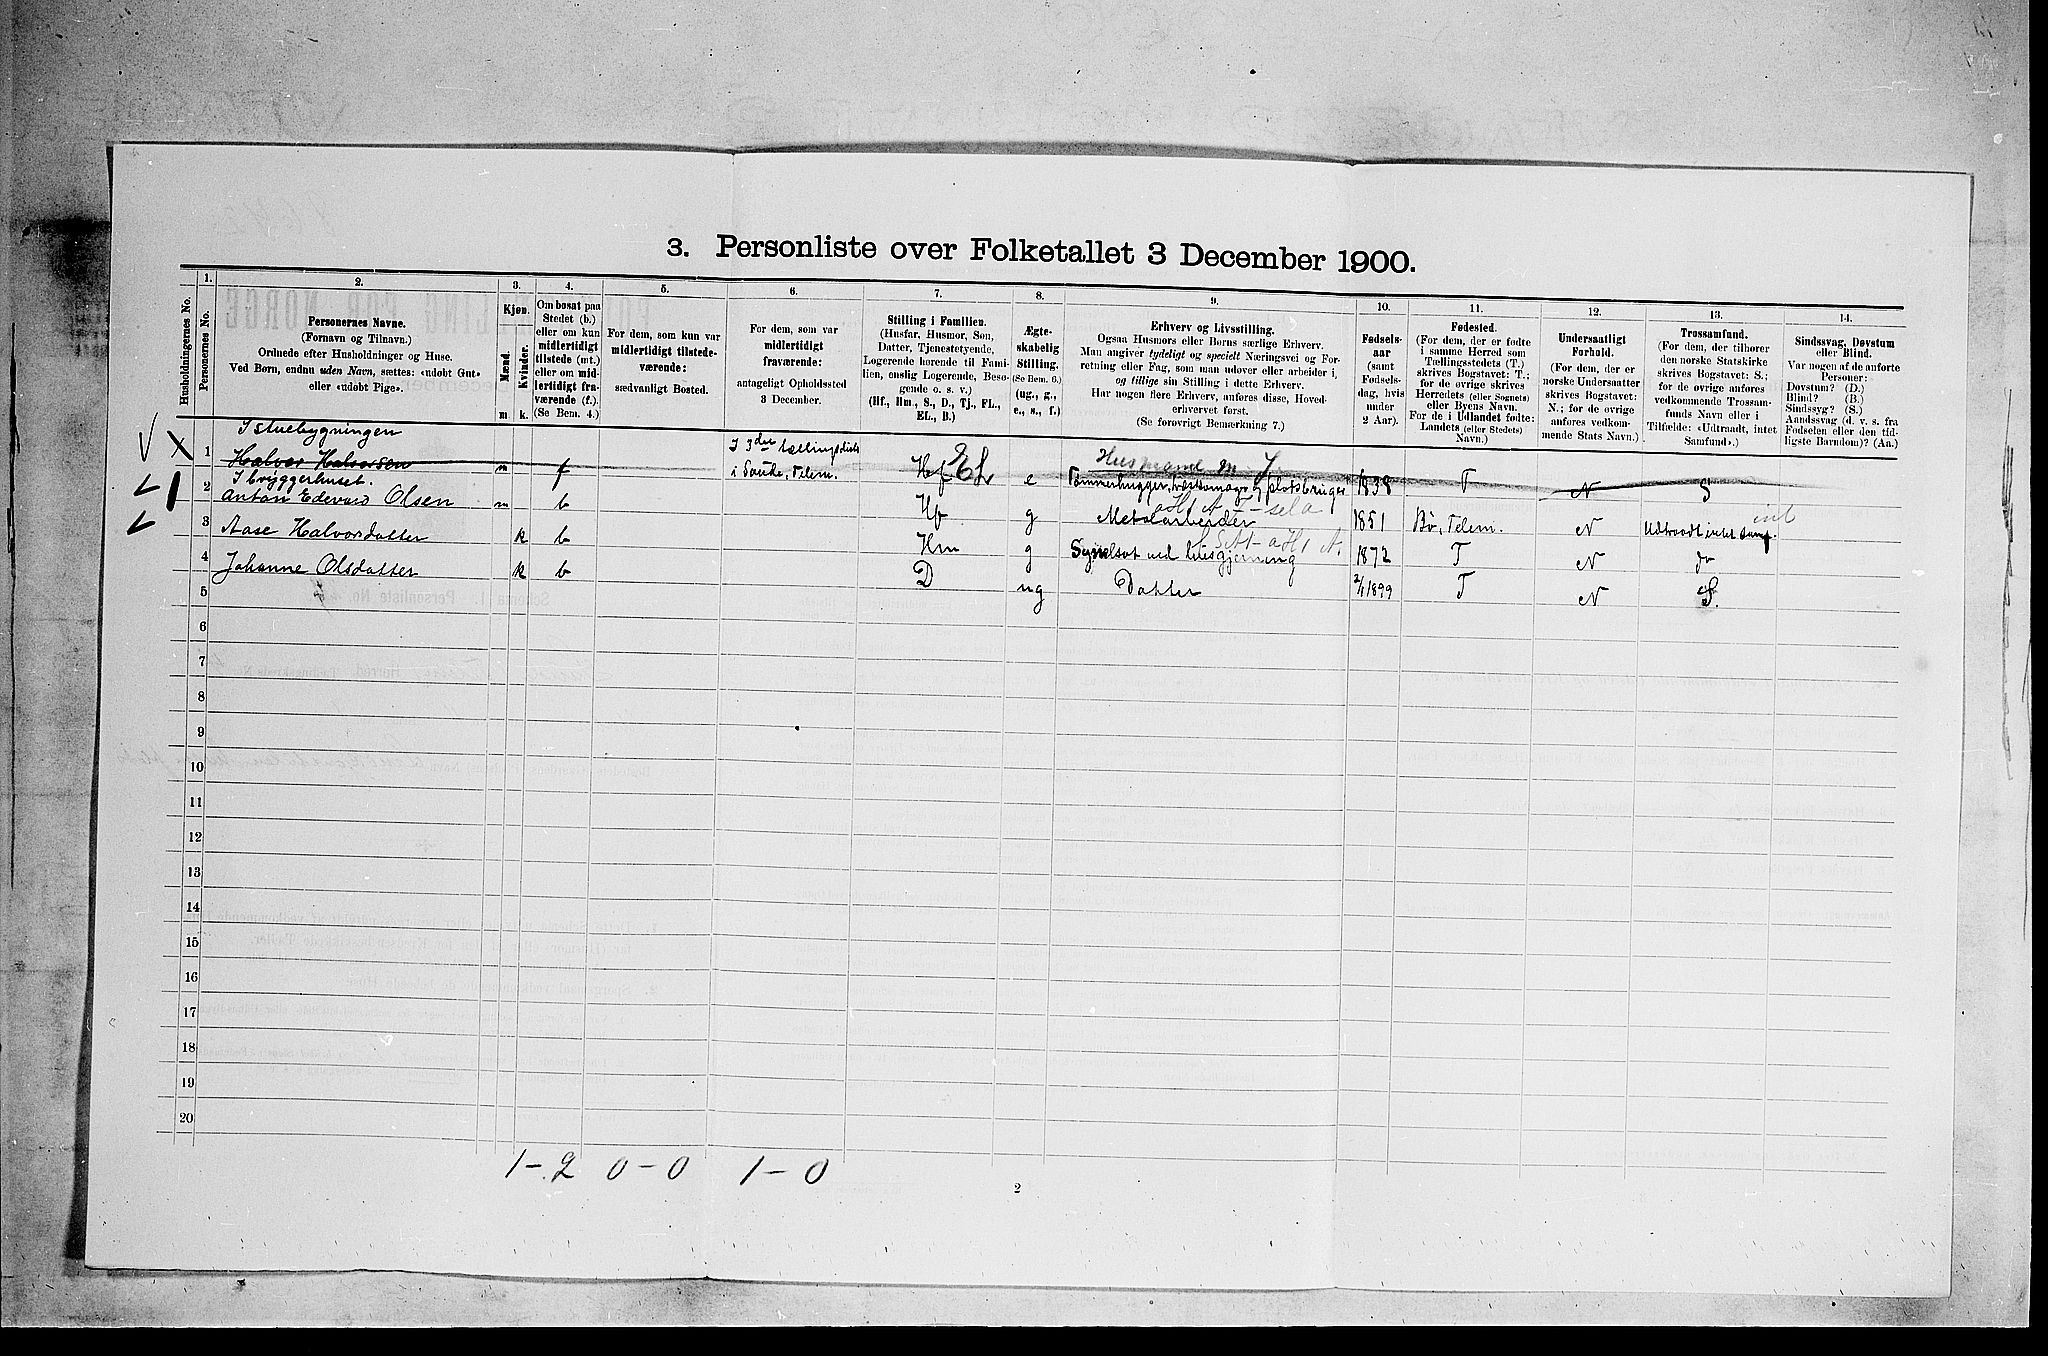 3. Personliste over Folketallet 3 December 1900.
Husholdningernes No.
1.
Personernes No.
2.
Personernes Navne.
(Fornavn og Tilnavn.)
Ordnede efter Husholdninger og Huse.
Ved Børn, endnu uden Navn, sættes: «udøbt Gut»
eller «udøbt Pige».
3.
Kjøn.
Mænd.
Kvinder.
m
k.
4.
Om bosat paa
Stedet (b.)
eller om kun
midlertidigt
tilstede (mt.)
eller om mid-
lertidigt fra-
værende (f.).
(Se Bem. 4.)
5.
For dem, som kun var
midlertidigt tilstede-
værende:
sædvanligt Bosted.
6.
For dem, som var
midlertidigt
fraværende:
antageligt Opholdssted
3 December.
7.
Stilling i Familien.
(Husfar, Husmor, Søn,
Datter, Tjenestetyende,
Logerende hørende til Fami-
lien, enslig Logerende, Besø-
gende o. s. v.)
(Hf., Hm., S., D., Tj., FL.,
EL., B.)
8.
Ægte-
skabelig
Stilling.
(Se Bem. 6.)
(ug., g.,
e., s., f.)
9.
Erhverv og Livsstilling.
Ogsaa Husmors eller Børns særlige Erhverv.
Man angiver tydeligt og specielt Næringsvei og For-
retning eller Fag, som man udøver eller arbeider i,
og tillige sin Stilling i dette Erhverv.
Har nogen flere Erhverv, anføres disse, Hoved-
erhvervet først.
(Se forøvrigt Bemærkning 7.)
10.
Fødsels-
aar
(samt
Fødsels-
dag, hvis
under
2 Aar).
11.
Fødested.
(For dem, der er fødte
i samme Herred som
Tællingsstedets (T.)
skrives Bogstavet: T.;
for de øvrige skrives
Herredets (eller Sognets)
eller Byens Navn.
For de i Udlandet fødte:
Landets (eller Stedets)
Navn.)
12.
Undersaatligt
Forhold.
(For dem, der er
norske Undersaatter
skrives Bogstavet:
N.; for de øvrige
anføres vedkom-
mende Stats Navn.)
13.
Trossamfund.
(For dem, der tilhører
den norske Statskirke
skrives Bogstavet: S.;
for de øvrige anføres
vedkommende Trossam-
funds Navn eller i
Tilfælde: «Udtraadt, intet
Samfund».)
14.
Sindssvag, Døvstum
eller Blind.
Var nogen af de anførte
Personer:
Døvstum? (D.)
Blind? (B.)
Sindssyg? (S.)
Aandssvag (d. v. s. fra
Fødselen eller den tid-
ligste Barndom)? (Aa.)
I stuebygningen
1 Halvor Halvorsen m f I 3die tællingsdistr. i Sauke, Telem. Hf EL e Husmand m J Tømmerhugger, træskomager og pladsbruger 1838 T N S
I bryggerhuset.
2 Anton Edevard Olsen m b Hf g Metalarbeider 1851 Bø, Telem. N Udtraadt intet samf.
3 Aase Halvorsdatter k b Hm g Sysselsat ved husgjerning 1872 T N do
4 Johanne Olsdatter k b D ug Datter 2/1 1899 T N S.
5
6
7
8
9
10
11
12
13
14
15
16
17
18
19
20
1-2 0-0 1-0
2